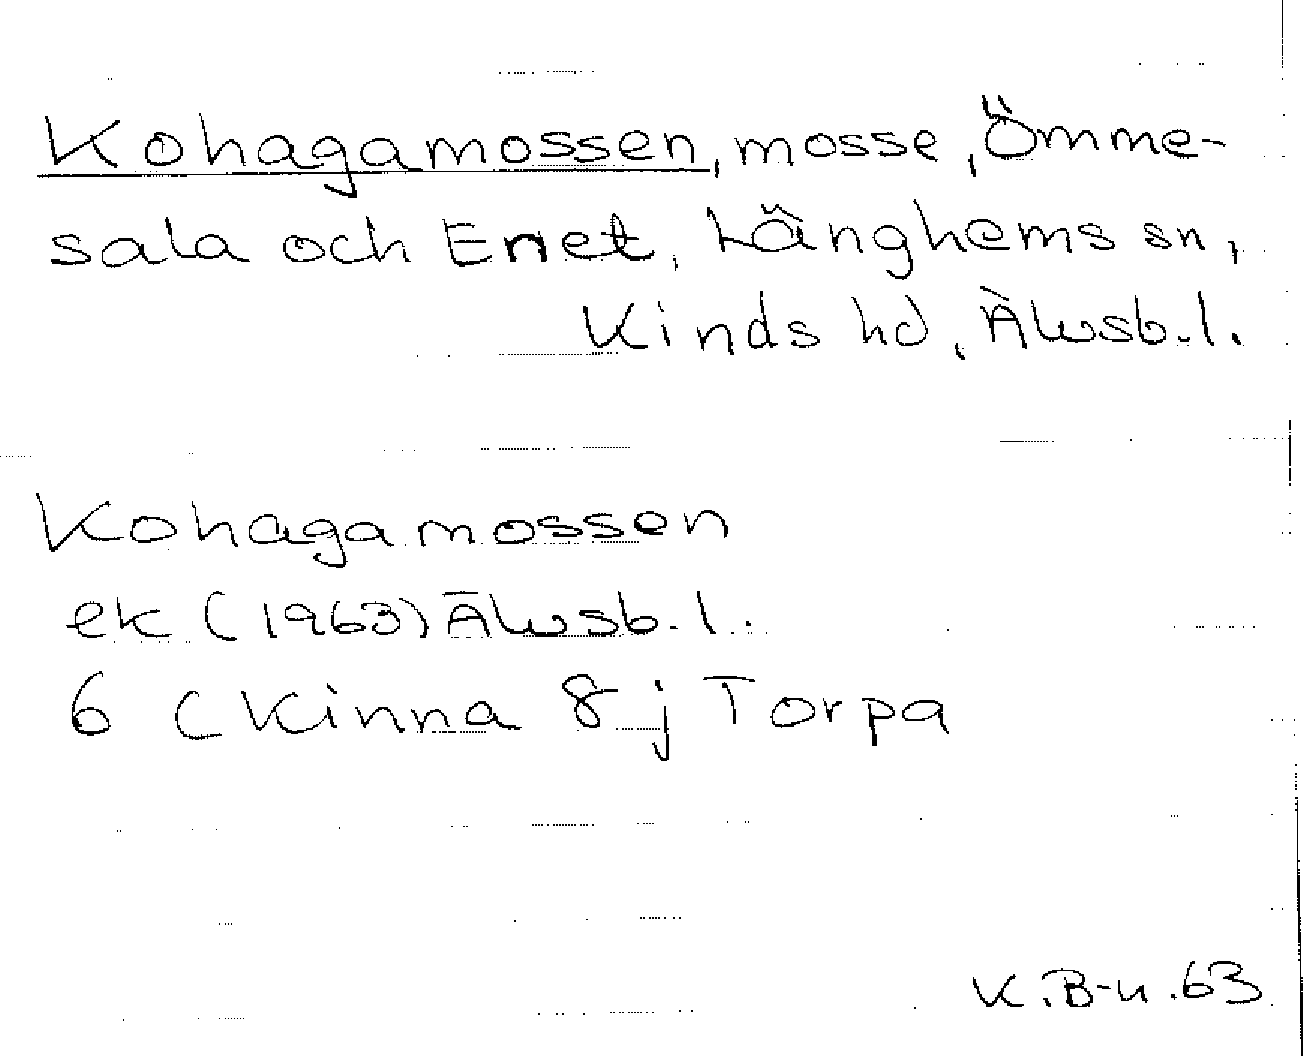 Kohagamossen, mosse, Ömme-
sala och Enet, Länghems sn,
Kinds hd, Älvsb.l.
Kohagamossen
ek (1963) Älvsb.l.
6 C Kinna 8 j Torpa
K.B-n.63